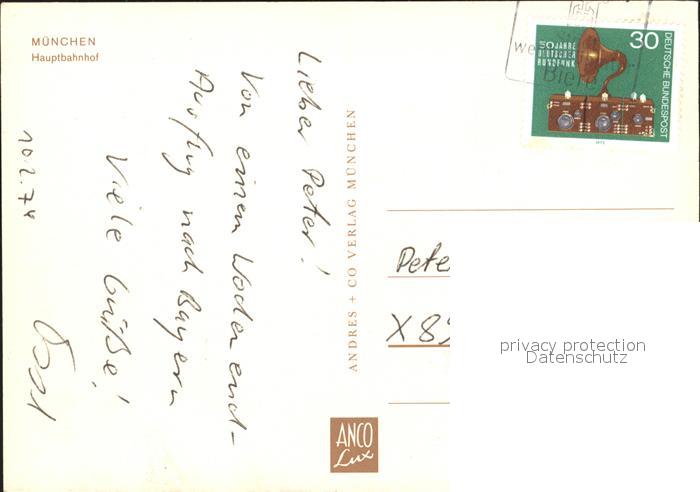 MÜNCHEN
Hauptbahnhof
10.2.74
Lieber Peter!
Von einem Wochenend-
Ausflug nach Bayern
Viele Grüße!
ANDRES + CO VERLAG MÜNCHEN
ANCO
Lux
50 JAHRE
DEUTSCHER
RUNDFUNK
30
DEUTSCHE BUNDESPOST
1973
Pete
X 89
privacy protection
Datenschutz